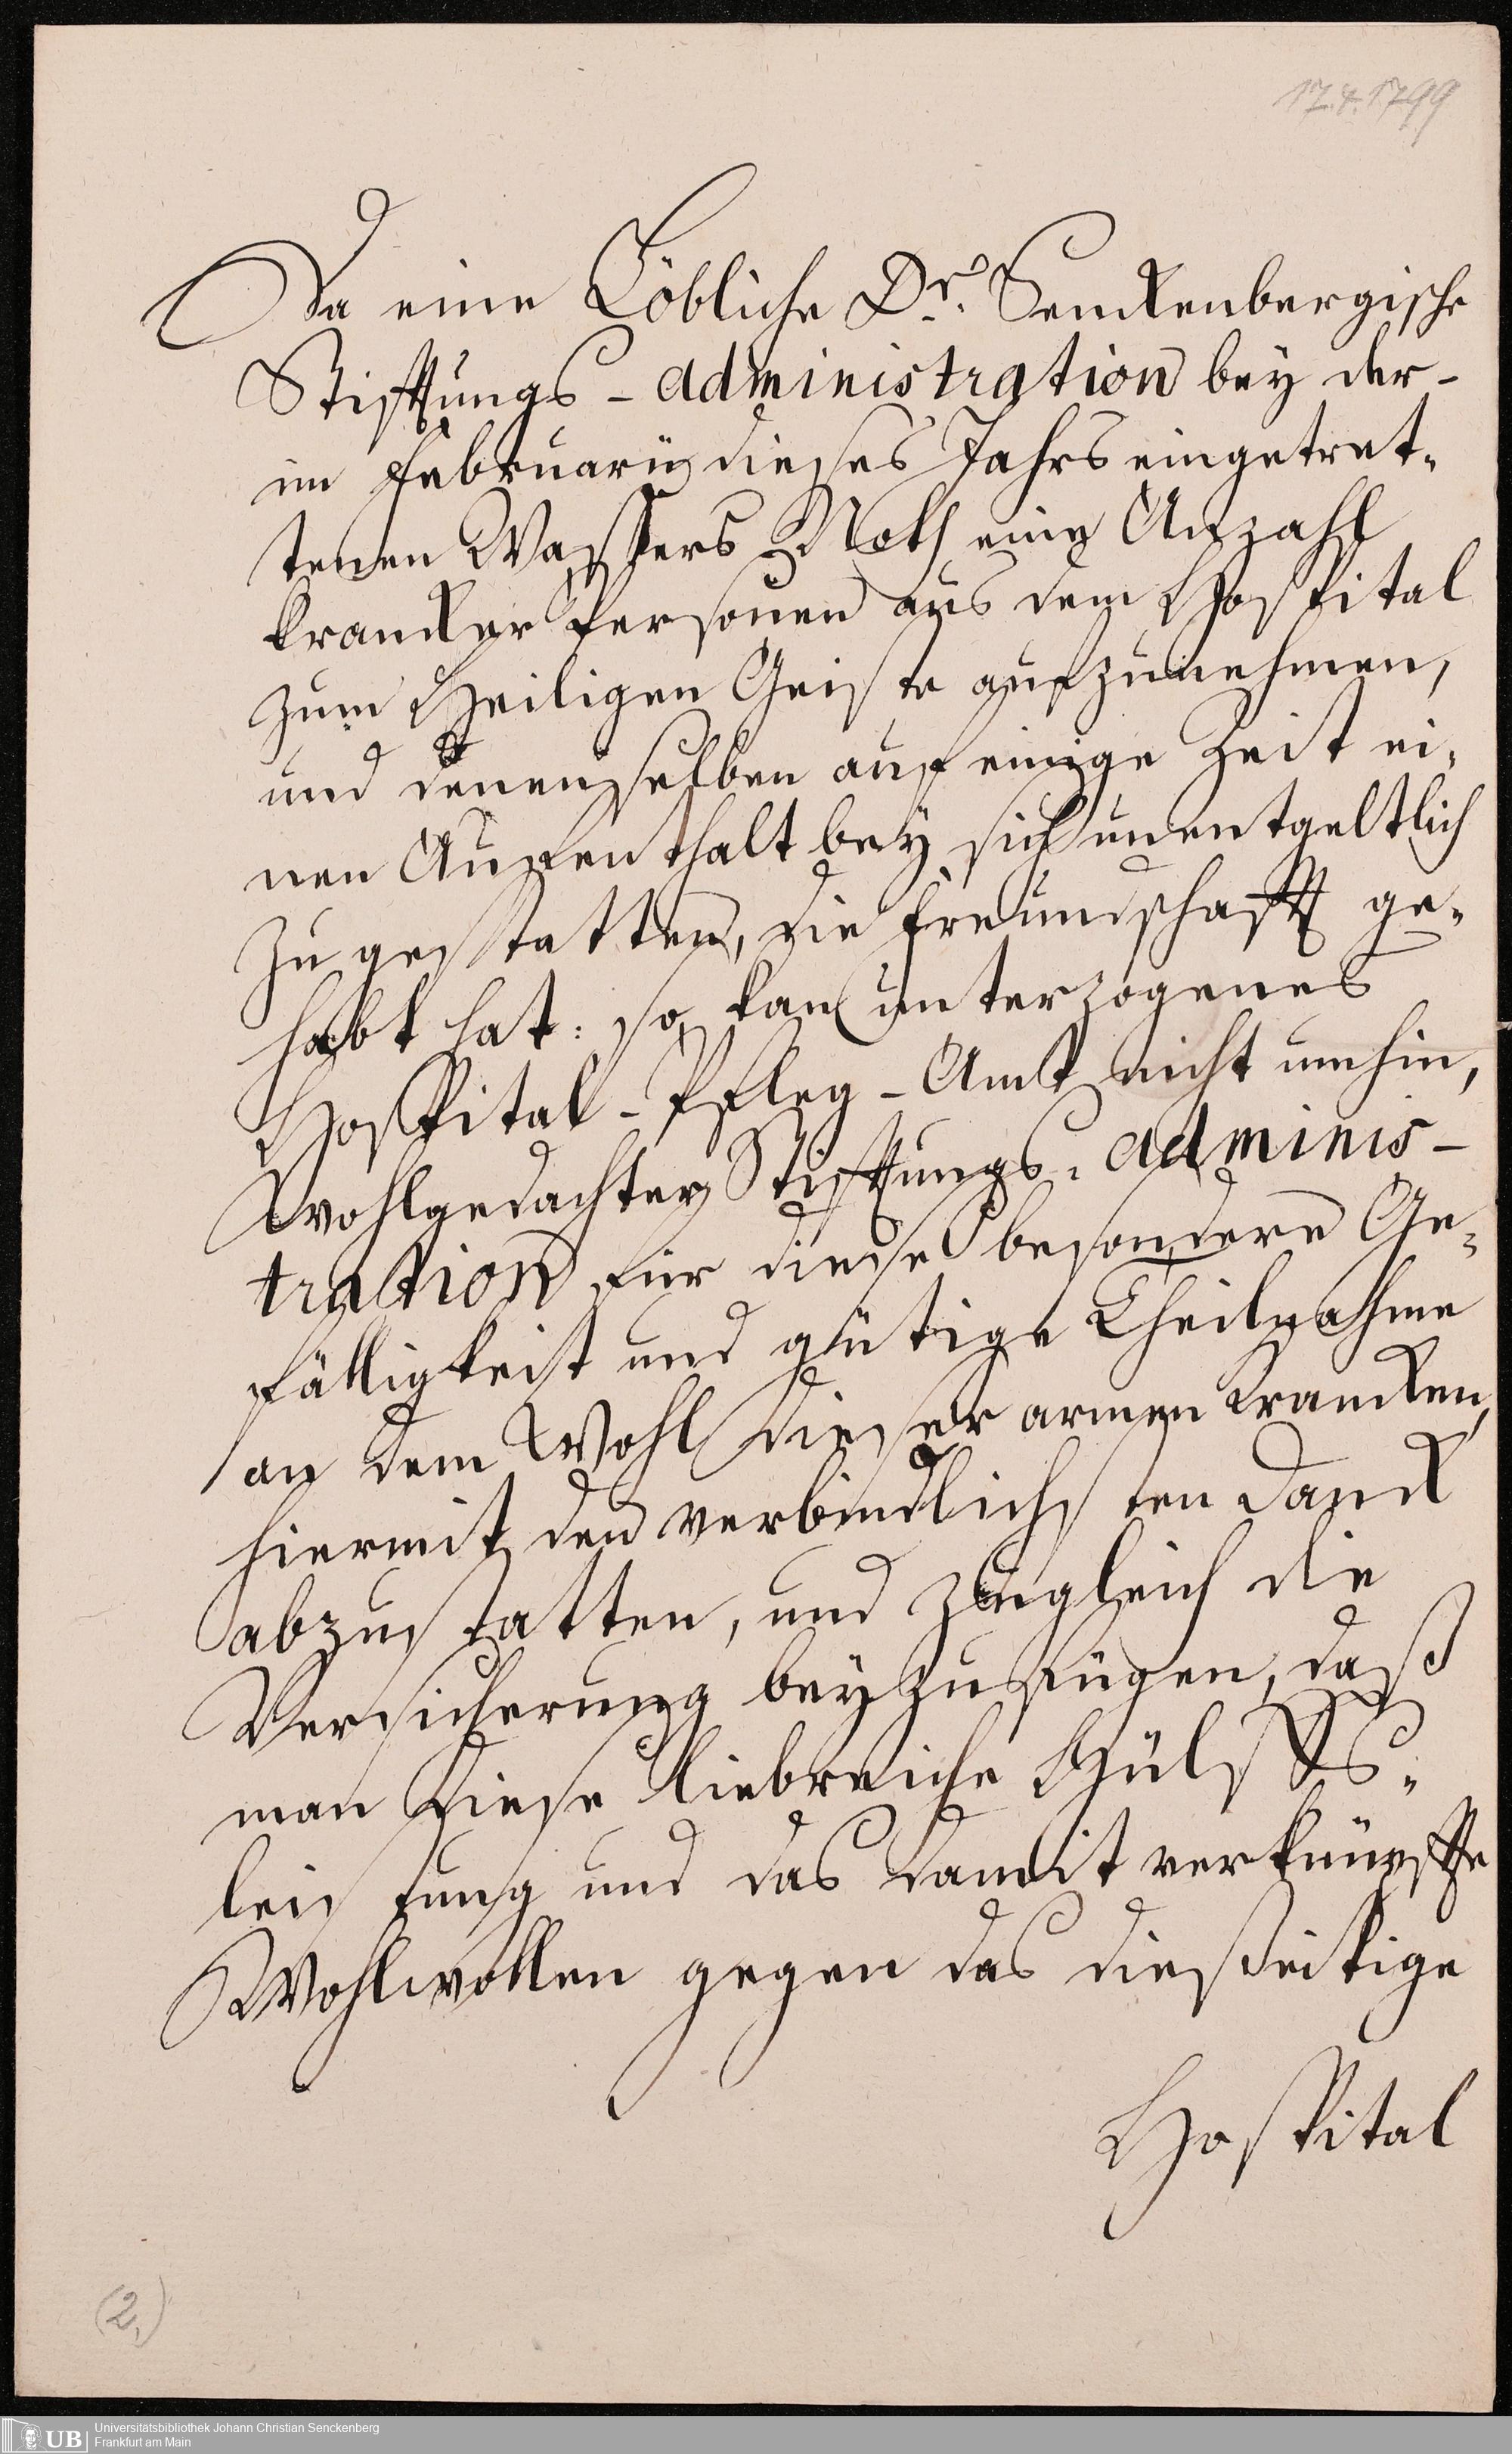 17.4.1799
Da eine Löbliche Dr. Senckenbergische
Stifftungs-Administration bey der-
im Februarii dieses Jahrs eingetret-
tenen Wassers Noth eine Anzahl
krancker Personen aus dem Hospital
zum Heiligen Geiste aufzunehmen,
und denenselben auf einige Zeit ei-
nen Aufenthalt bey sich unentgeltlich
zu gestatten, die Freundschafft ge-
habt hat: so kan unterzogenes
Hospital-Pfleg-Amt nicht umhin,
Wohlgedachter Stifftungs-Adminis-
tration für diese besondere Ge-
fälligkeit und gütige Theilnahme
an dem Wohl dieser armen Krancken,
hiermit den verbindlichsten Danck
abzustatten, und zugleich die
Versicherung beyzufügen, daß
man diese liebreiche Hülffs-
leistung und das damit verknüpffte
Wohlwollen gegen das dießeitige
Hospital
(2.)
UB Universitätsbibliothek Johann Christian Senckenberg
Frankfurt am Main